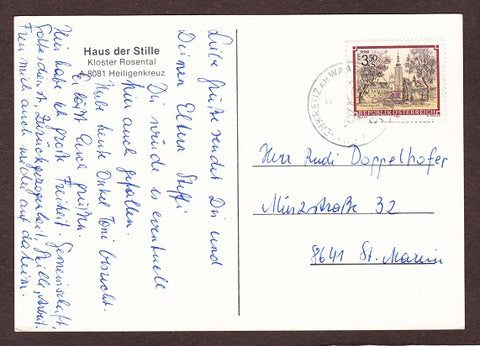 Haus der Stille
Kloster Rosental
A-8081 Heiligenkreuz
Liebe Grüße sendet Dir und
Deinen Eltern Steffi
Dir würde es eventuell
hier auch gefallen.
Habe heute Onkel Toni besucht.
Er läßt Euch grüßen.
Hier habe ich große Freiheit. Gemeinschaft,
Gottesdienst, Zurückgezogenheit, Stille, Arbeit.
Freu mich auch wieder auf daheim.
3.50
REPUBLIK ÖSTERREICH
HEILIGENKREUZ AM WAASEN
Herr Rudi Doppelhofer
Münzstraße 32
8641 St. Marein